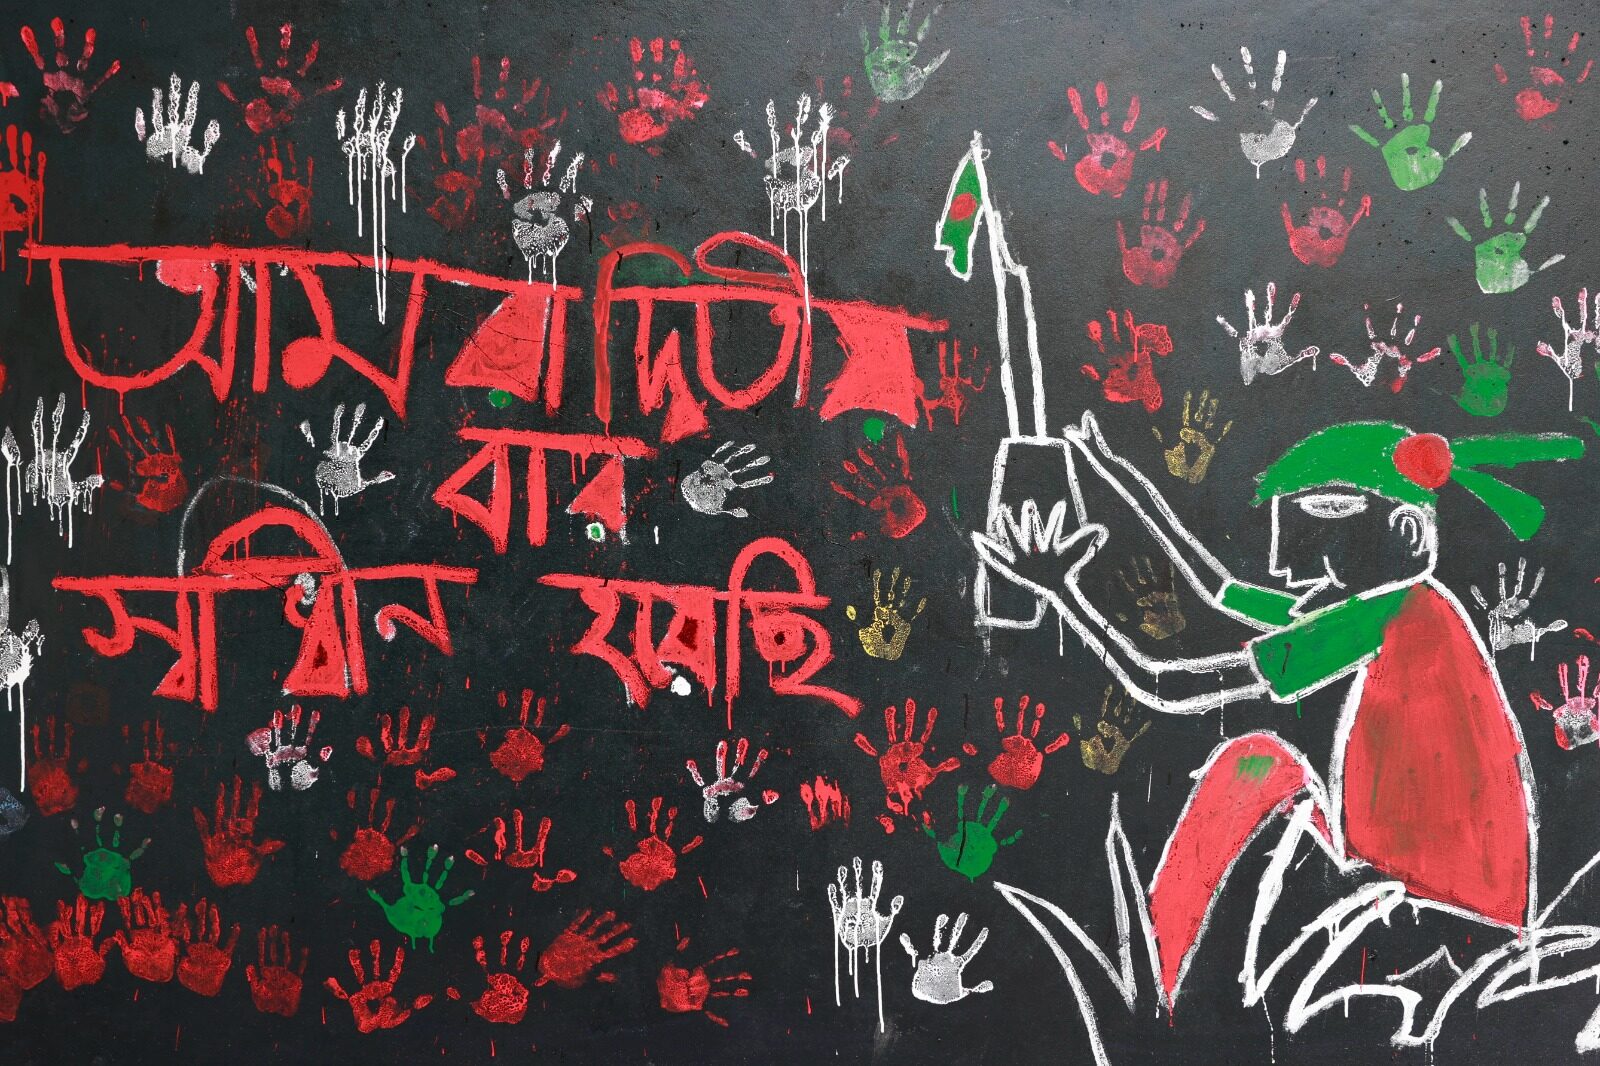 আমরা দ্বিতীয়
বার
স্বাধীন হয়েছি